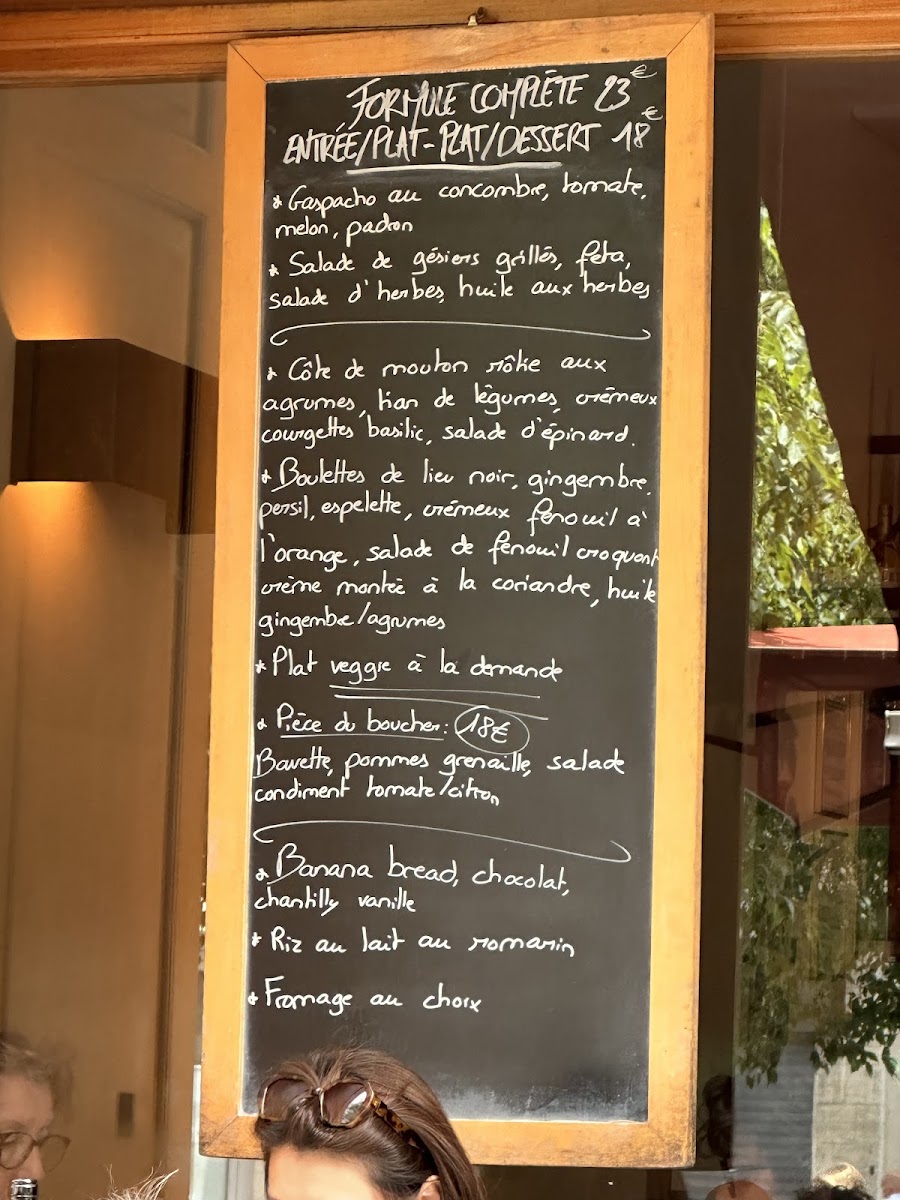 FORMULE COMPLÈTE 23€
ENTRÉE/PLAT-PLAT/DESSERT 18€
* Gaspacho au concombre, tomate,
melon, padron
* Salade de gésiers grillés, feta,
salade d'herbes, huile aux herbes
* Côte de mouton rôtie aux
agrumes, tian de légumes, crémeux
courgettes basilic, salade d'épinard.
* Boulettes de lieu noir, gingembre,
persil, espelette, crémeux fenouil à
l'orange, salade de fenouil croquant
crème montée à la coriandre, huile
gingembre/agrumes
* Plat veggie à la demande
* Pièce du boucher: 18€
Bavette, pommes grenaille, salade
condiment tomate/citron
* Banana bread, chocolat,
chantilly vanille
* Riz au lait au romarin
* Fromage au choix